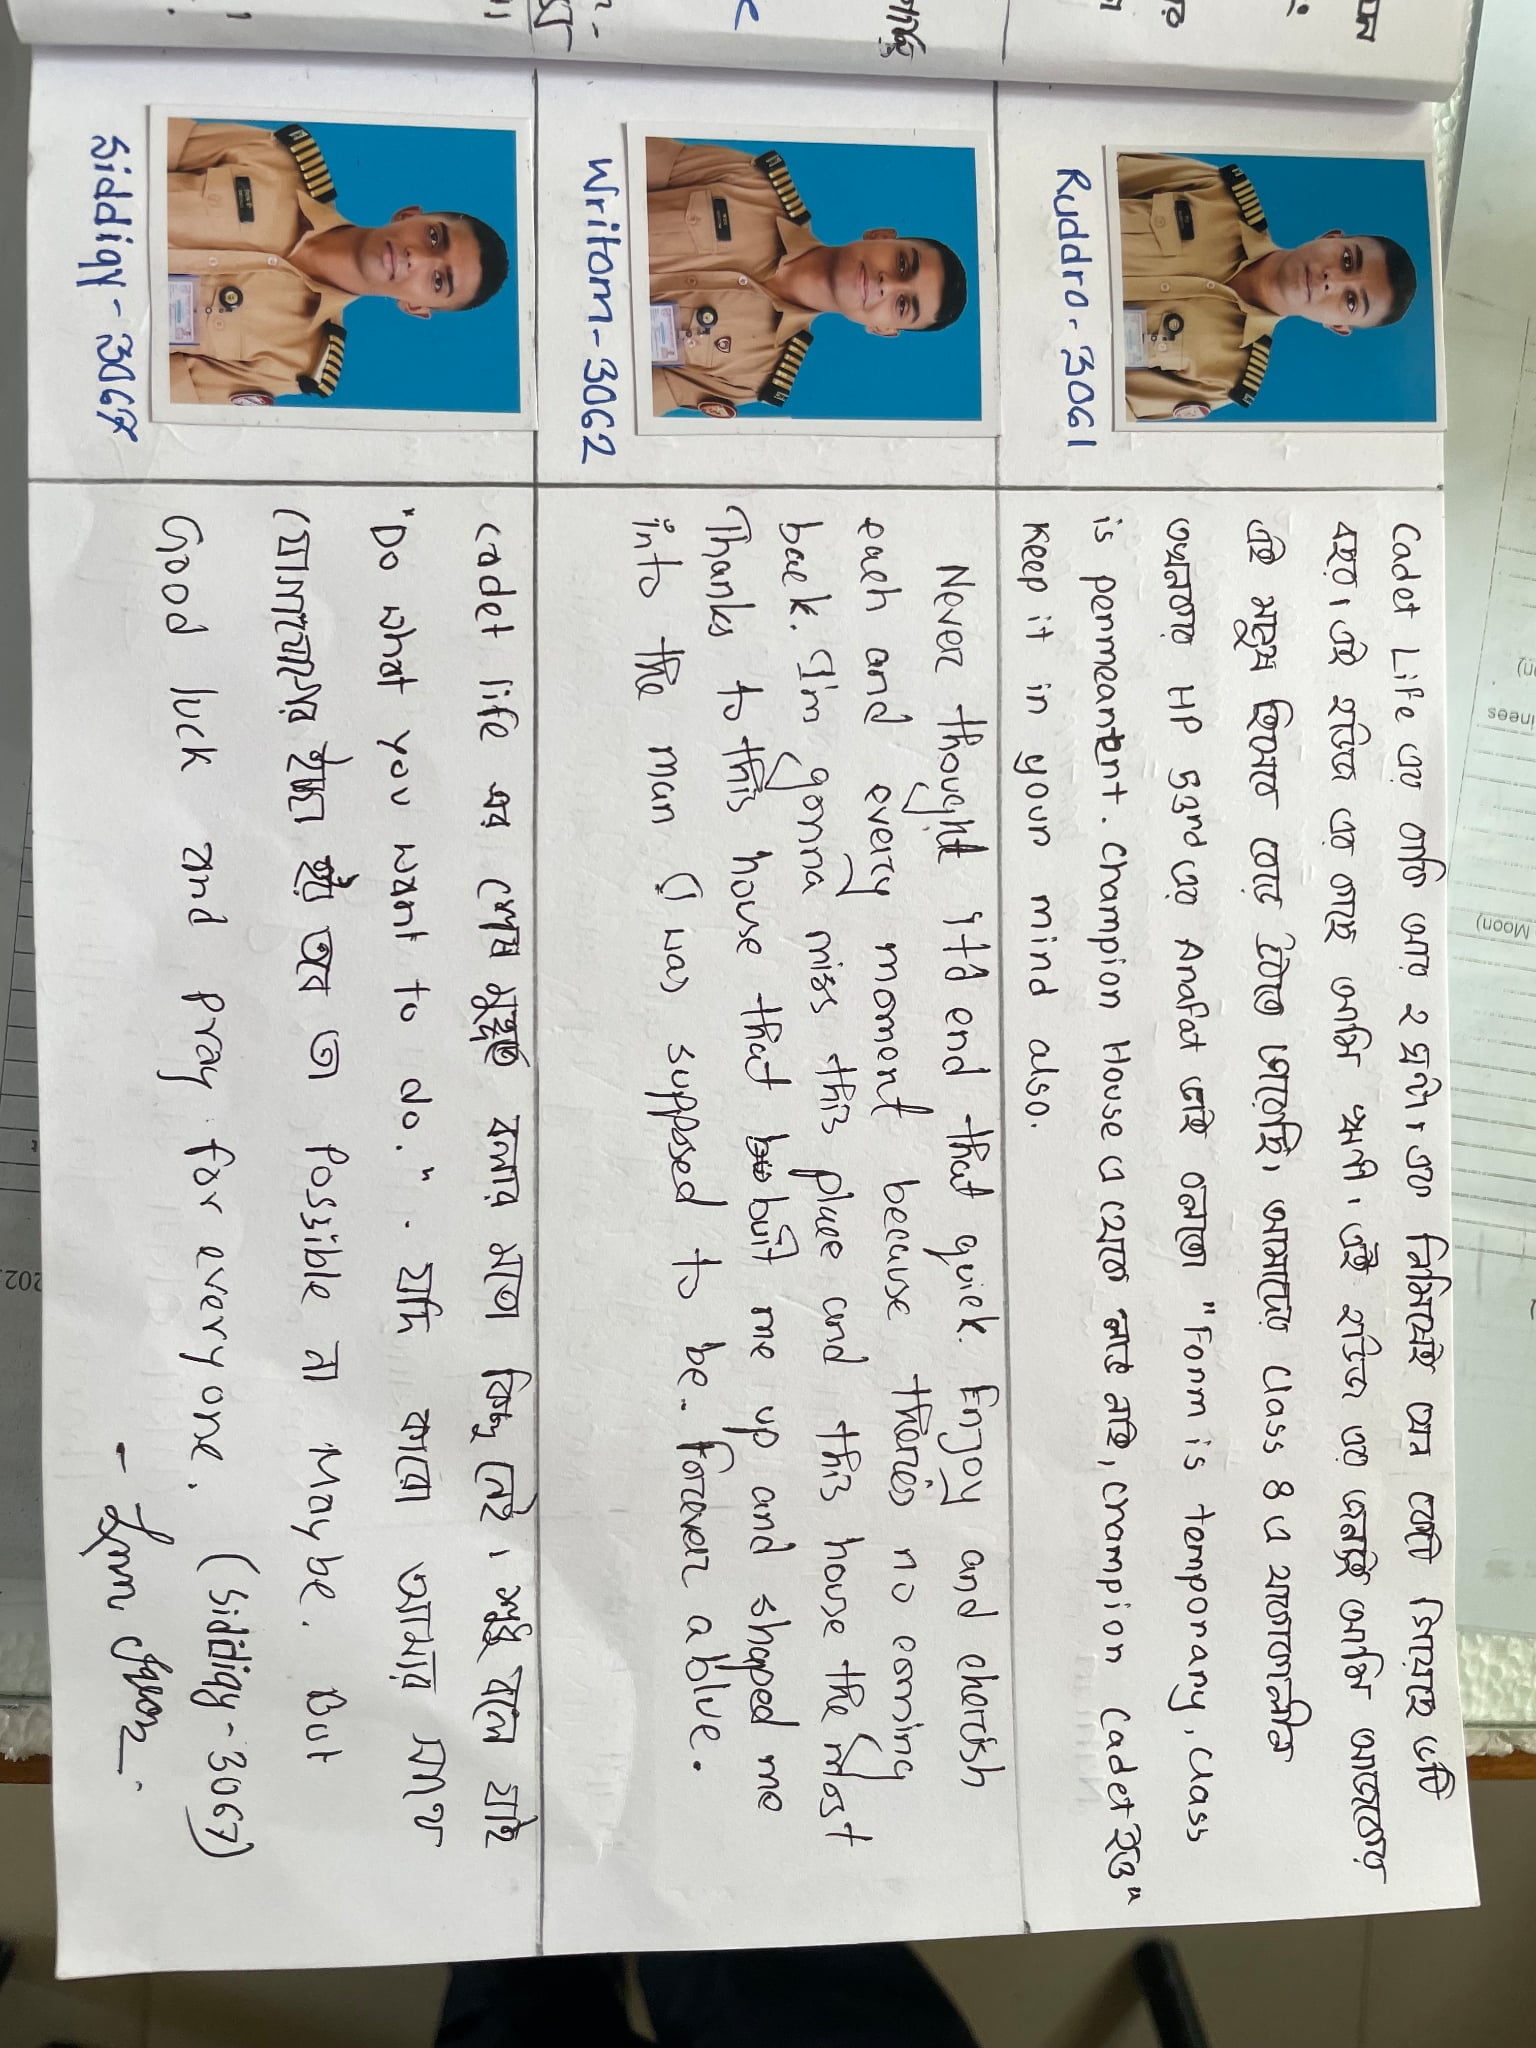 Cadet Life এর বাকি আর ২ ঘন্টা। এক নিমিষেই যেন কেটে গিয়েছে ৬টি
বছর। এই হাউজ এর কাছে আমি ঋণী। এই হাউজ এর জন্যই আমি আজকের
এই মানুষ হিসেবে বেড়ে উঠতে পেরেছি। আমাদের Class 8 এ থাকাকালীন
তখনকার HP 53rd এর Arafat ভাই বলতো "Form is temporary, Class
is permeanent. Champion House এ থেকে লাভ নাই, Champion Cadet হও"
Keep it in your mind also.
Ruddro- 3061
Never thought it'd end that quick. Enjoy and cherish
each and every moment because there's no coming
back. I'm gonna miss this place and this house the most
Thanks to this house that buit me up and shaped me
into the man I was supposed to be. Forever a blue.
Writom-3062
Cadet life এর শেষ মুহূর্তে বলার মতো কিছু নেই। শুধু বলে যাই
"Do what you want to do." . যদি কারো আমার সাথে
যোগাযোগের ইচ্ছা হয় তবে তা Possible না Maybe. But
Good luck and pray for everyone. (Siddiqy-3067)
Siddiqy-3067